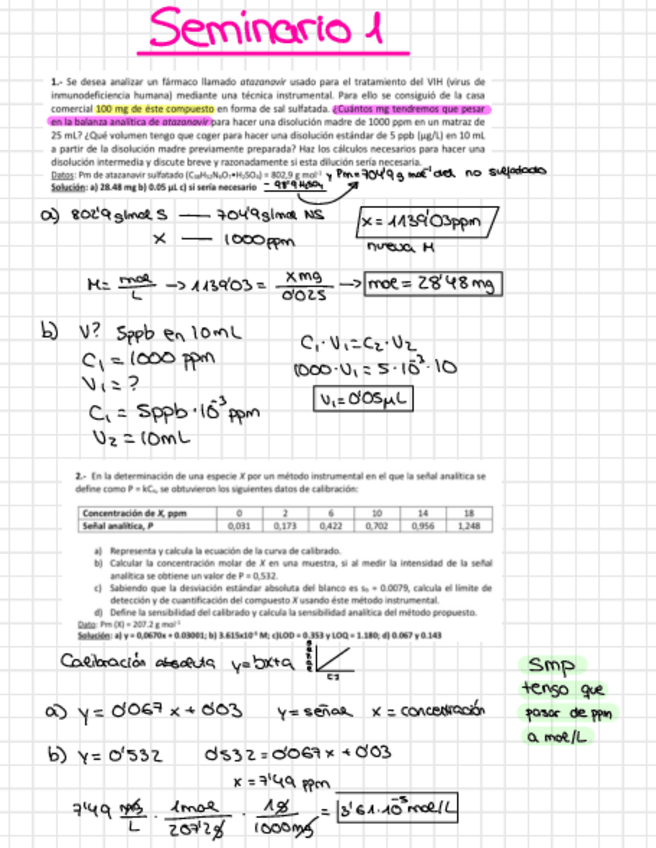 Seminario 1
1.- Se desea analizar un fármaco llamado atazanavir usado para el tratamiento del VIH (virus de
inmunodeficiencia humana) mediante una técnica instrumental. Para ello se consiguió de la casa
comercial 100 mg de éste compuesto en forma de sal sulfatada. ¿Cuántos mg tendremos que pesar
en la balanza analítica de atazanavir para hacer una disolución madre de 1000 ppm en un matraz de
25 mL? ¿Qué volumen tengo que coger para hacer una disolución estándar de 5 ppb (µg/L) en 10 mL
a partir de la disolución madre previamente preparada? Haz los cálculos necesarios para hacer una
disolución intermedia y discute breve y razonadamente si esta dilución sería necesaria.
Datos: Pm de atazanavir sulfatado = 802,9 g mol⁻¹ y Pm=704'9 g mol⁻¹ del no sulfatado
Solución: a) 28.48 mg b) 0.05 µL c) si sería necesario - 98'9 H₂SO₄
a) 802'9 g/mol S — 704'9 g/mol NS
x — 1000 ppm
x = 1139'03 ppm
nueva M
M = mol/L → 1139'03 = x mg/0'025 → mol = 28'48 mg
b) V? 5ppb en 10mL
C₁ = 1000 ppm
V₁ = ?
C₁ = 5ppb · 10⁻³ ppm
V₂ = 10mL
C₁ · V₁ = C₂ · V₂
1000 · V₁ = 5 · 10⁻³ · 10
V₁ = 0'05 µL
2.- En la determinación de una especie X por un método instrumental en el que la señal analítica se
define como P = kCₓ, se obtuvieron los siguientes datos de calibración:
Concentración de X, ppm 0 2 6 10 14 18
Señal analítica, P 0,031 0,173 0,422 0,702 0,956 1,248
a) Representa y calcula la ecuación de la curva de calibrado.
b) Calcular la concentración molar de X en una muestra, si al medir la intensidad de la señal
analítica se obtiene un valor de P = 0,532.
c) Sabiendo que la desviación estándar absoluta del blanco es s_b = 0.0079, calcula el límite de
detección y de cuantificación del compuesto X usando éste método instrumental.
d) Define la sensibilidad del calibrado y calcula la sensibilidad analítica del método propuesto.
Dato: Pm (X) = 207.2 g mol⁻¹
Solución: a) y = 0,0670x + 0.03001; b) 3.615x10⁻⁵ M; c)LOD = 0.353 y LOQ = 1.180; d) 0.067 y 0.143
Calibración absoluta y=bx+a
a) y = 0'067 x + 0'03 y = señal x = concentración
b) y = 0'532 0'532 = 0'067 x + 0'03
x = 7'49 ppm
7'49 mg/L · 1mol/207'2g · 1g/1000mg = 3'61·10⁻⁵ mol/L
Smp
tengo que
pasar de ppm
a mol/L